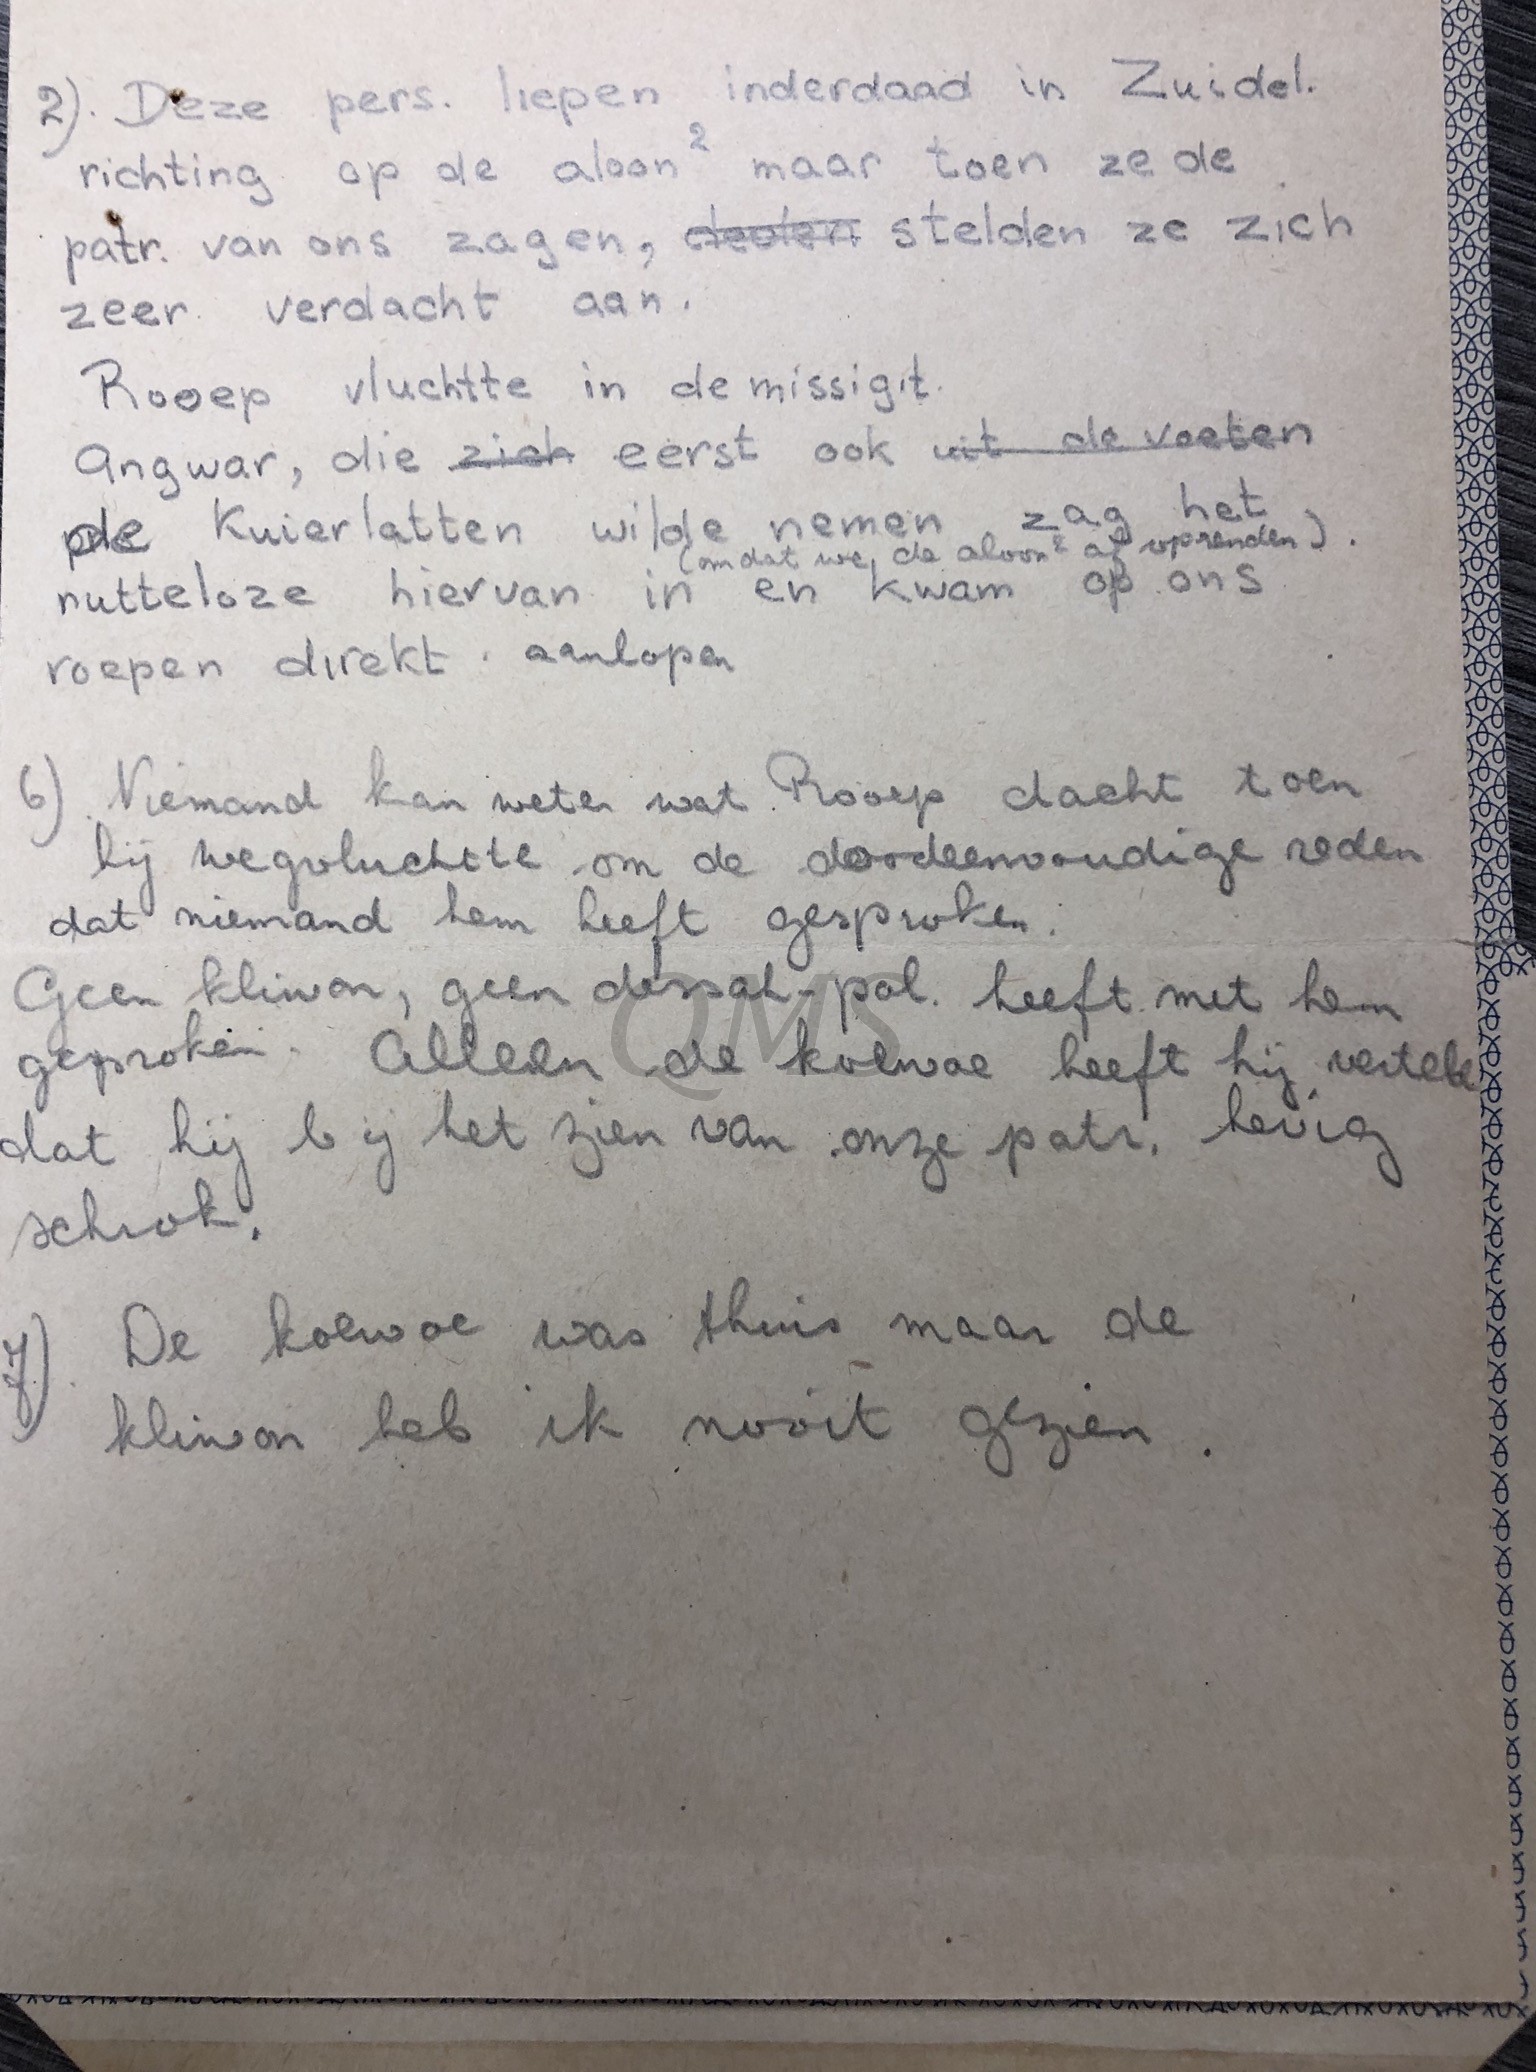 2). Deze pers. liepen inderdaad in Zuidel.
richting op de aloon² maar toen ze de
patr. van ons zagen, deden stelden ze zich
zeer verdacht aan.
Rooep vluchtte in de missigit.
Angwar, die zich eerst ook uit de voeten
de kuierlatten wilde nemen zag het
(omdat we de aloon² af oprenden).
nutteloze hiervan in en kwam op ons
roepen direkt aanlopen
6) Niemand kan weten wat Rooep dacht toen
hij wegvluchtte om de doodeenvoudige reden
dat niemand hem heeft gesproken.
Geen kliwon, geen dessah-pol. heeft met hem
gesproken. Alleen de koewoe heeft hij verteld
dat hij bij het zien van onze patr. hevig
schrok.
QMS
7). De koewoe was thuis maar de
kliwon heb ik nooit gezien.